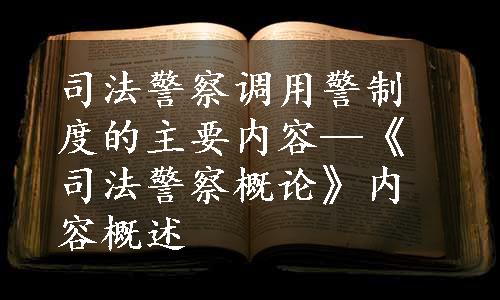 司法警察调用警制
度的主要内容—《
司法警察概论》内
容概述